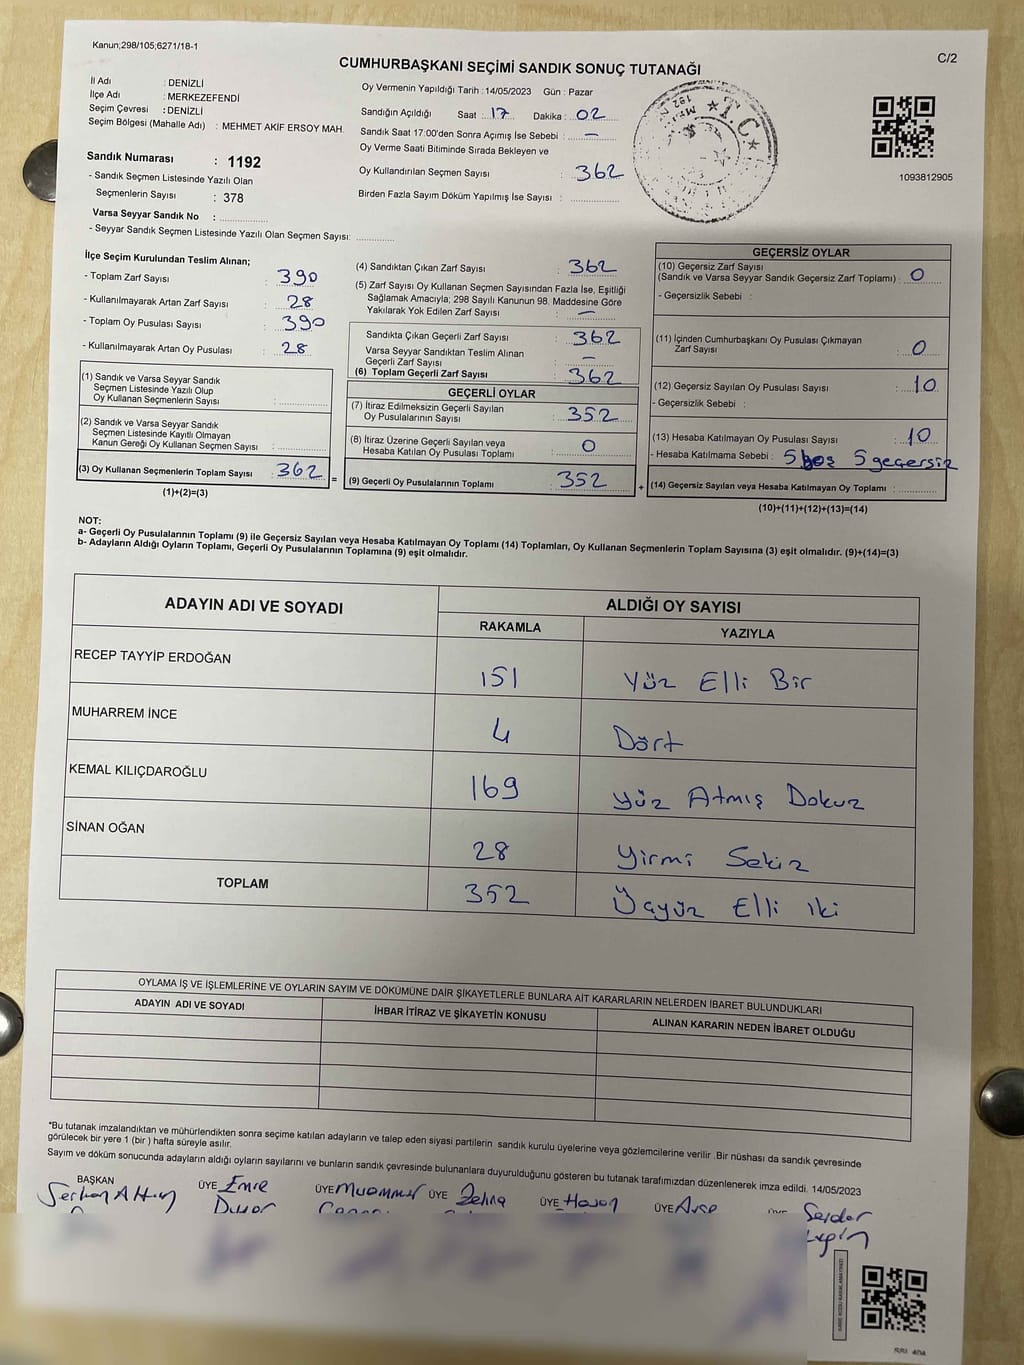 Kanun;298/105;6271/18-1
C/2
CUMHURBAŞKANI SEÇİMİ SANDIK SONUÇ TUTANAĞI
İl Adı : DENİZLİ
İlçe Adı : MERKEZEFENDİ
Seçim Çevresi : DENİZLİ
Seçim Bölgesi (Mahalle Adı) : MEHMET AKİF ERSOY MAH.
Sandık Numarası : 1192
- Sandık Seçmen Listesinde Yazılı Olan
Seçmenlerin Sayısı : 378
Varsa Seyyar Sandık No :
- Seyyar Sandık Seçmen Listesinde Yazılı Olan Seçmen Sayısı:
Oy Vermenin Yapıldığı Tarih :14/05/2023 Gün : Pazar
Sandığın Açıldığı Saat : 17 Dakika : 02
Sandık Saat 17:00'den Sonra Açımış İse Sebebi : —
Oy Verme Saati Bitiminde Sırada Bekleyen ve
Oy Kullandırılan Seçmen Sayısı : 362
Birden Fazla Sayım Döküm Yapılmış İse Sayısı :
T.C
1093812905
İlçe Seçim Kurulundan Teslim Alınan;
- Toplam Zarf Sayısı : 390
- Kullanılmayarak Artan Zarf Sayısı : 28
- Toplam Oy Pusulası Sayısı : 390
- Kullanılmayarak Artan Oy Pusulası : 28
(1) Sandık ve Varsa Seyyar Sandık
Seçmen Listesinde Yazılı Olup
Oy Kullanan Seçmenlerin Sayısı :
(2) Sandık ve Varsa Seyyar Sandık
Seçmen Listesinde Kayıtlı Olmayan
Kanun Gereği Oy Kullanan Seçmen Sayısı :
(3) Oy Kullanan Seçmenlerin Toplam Sayısı : 362
(1)+(2)=(3)
=
(4) Sandıktan Çıkan Zarf Sayısı : 362
(5) Zarf Sayısı Oy Kullanan Seçmen Sayısından Fazla İse, Eşitliği
Sağlamak Amacıyla; 298 Sayılı Kanunun 98. Maddesine Göre
Yakılarak Yok Edilen Zarf Sayısı : —
Sandıkta Çıkan Geçerli Zarf Sayısı : 362
Varsa Seyyar Sandıktan Teslim Alınan
Geçerli Zarf Sayısı : —
(6) Toplam Geçerli Zarf Sayısı : 362
GEÇERLİ OYLAR
(7) İtiraz Edilmeksizin Geçerli Sayılan
Oy Pusulalarının Sayısı : 352
(8) İtiraz Üzerine Geçerli Sayılan veya
Hesaba Katılan Oy Pusulası Toplamı : 0
(9) Geçerli Oy Pusulalarının Toplamı : 352
+
GEÇERSİZ OYLAR
(10) Geçersiz Zarf Sayısı
(Sandık ve Varsa Seyyar Sandık Geçersiz Zarf Toplamı) : 0
- Geçersizlik Sebebi :
(11) İçinden Cumhurbaşkanı Oy Pusulası Çıkmayan
Zarf Sayısı : 0
(12) Geçersiz Sayılan Oy Pusulası Sayısı : 10
- Geçersizlik Sebebi :
(13) Hesaba Katılmayan Oy Pusulası Sayısı : 10
- Hesaba Katılmama Sebebi : 5 boş 5 geçersiz
(14) Geçersiz Sayılan veya Hesaba Katılmayan Oy Toplamı :
(10)+(11)+(12)+(13)=(14)
NOT:
a- Geçerli Oy Pusulalarının Toplamı (9) ile Geçersiz Sayılan veya Hesaba Katılmayan Oy Toplamı (14) Toplamları, Oy Kullanan Seçmenlerin Toplam Sayısına (3) eşit olmalıdır. (9)+(14)=(3)
b- Adayların Aldığı Oyların Toplamı, Geçerli Oy Pusulalarının Toplamına (9) eşit olmalıdır.
ADAYIN ADI VE SOYADI ALDIĞI OY SAYISI
RAKAMLA YAZIYLA
RECEP TAYYİP ERDOĞAN 151 Yüz Elli Bir
MUHARREM İNCE 4 Dört
KEMAL KILIÇDAROĞLU 169 Yüz Atmış Dokuz
SİNAN OĞAN 28 Yirmi Sekiz
TOPLAM 352 Üçyüz Elli iki
OYLAMA İŞ VE İŞLEMLERİNE VE OYLARIN SAYIM VE DÖKÜMÜNE DAİR ŞİKAYETLERLE BUNLARA AİT KARARLARIN NELERDEN İBARET BULUNDUKLARI
ADAYIN ADI VE SOYADI İHBAR İTİRAZ VE ŞİKAYETİN KONUSU ALINAN KARARIN NEDEN İBARET OLDUĞU
*Bu tutanak imzalandıktan ve mühürlendikten sonra seçime katılan adayların ve talep eden siyasi partilerin sandık kurulu üyelerine veya gözlemcilerine verilir .Bir nüshası da sandık çevresinde
görülecek bir yere 1 (bir ) hafta süreyle asılır.
Sayım ve döküm sonucunda adayların aldığı oyların sayılarını ve bunların sandık çevresinde bulunanlara duyurulduğunu gösteren bu tutanak tarafımızdan düzenlenerek imza edildi. 14/05/2023
BAŞKAN ÜYE Emre ÜYE Muammer ÜYE Zehra ÜYE Hasan ÜYE Ayşe Serdar
Serkan Altın